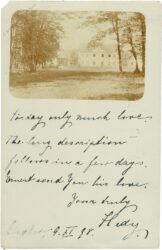 Today only much love.
The long description
follows in a few days.
Ernest send you his love.
Yours truly
9. XI 98.